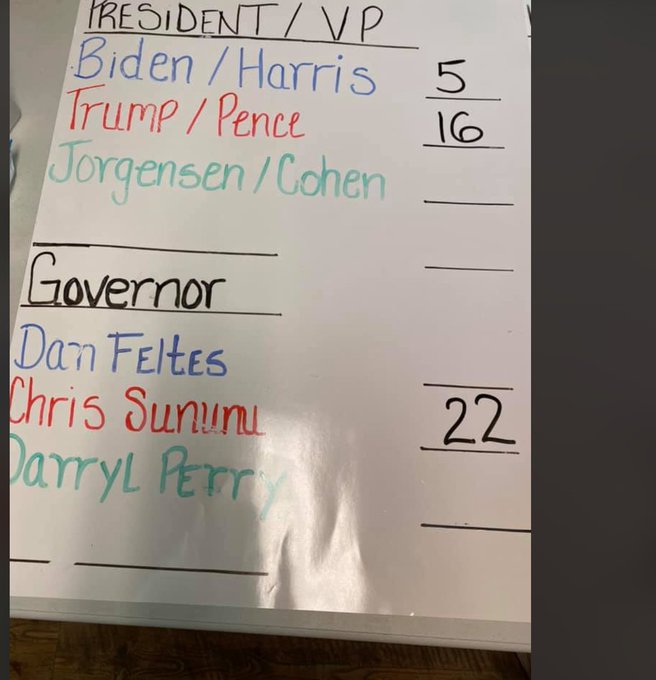 PRESIDENT / VP
Biden / Harris 5
Trump / Pence 16
Jorgensen / Cohen
Governor
Dan Feltes
Chris Sununu 22
Darryl Perry